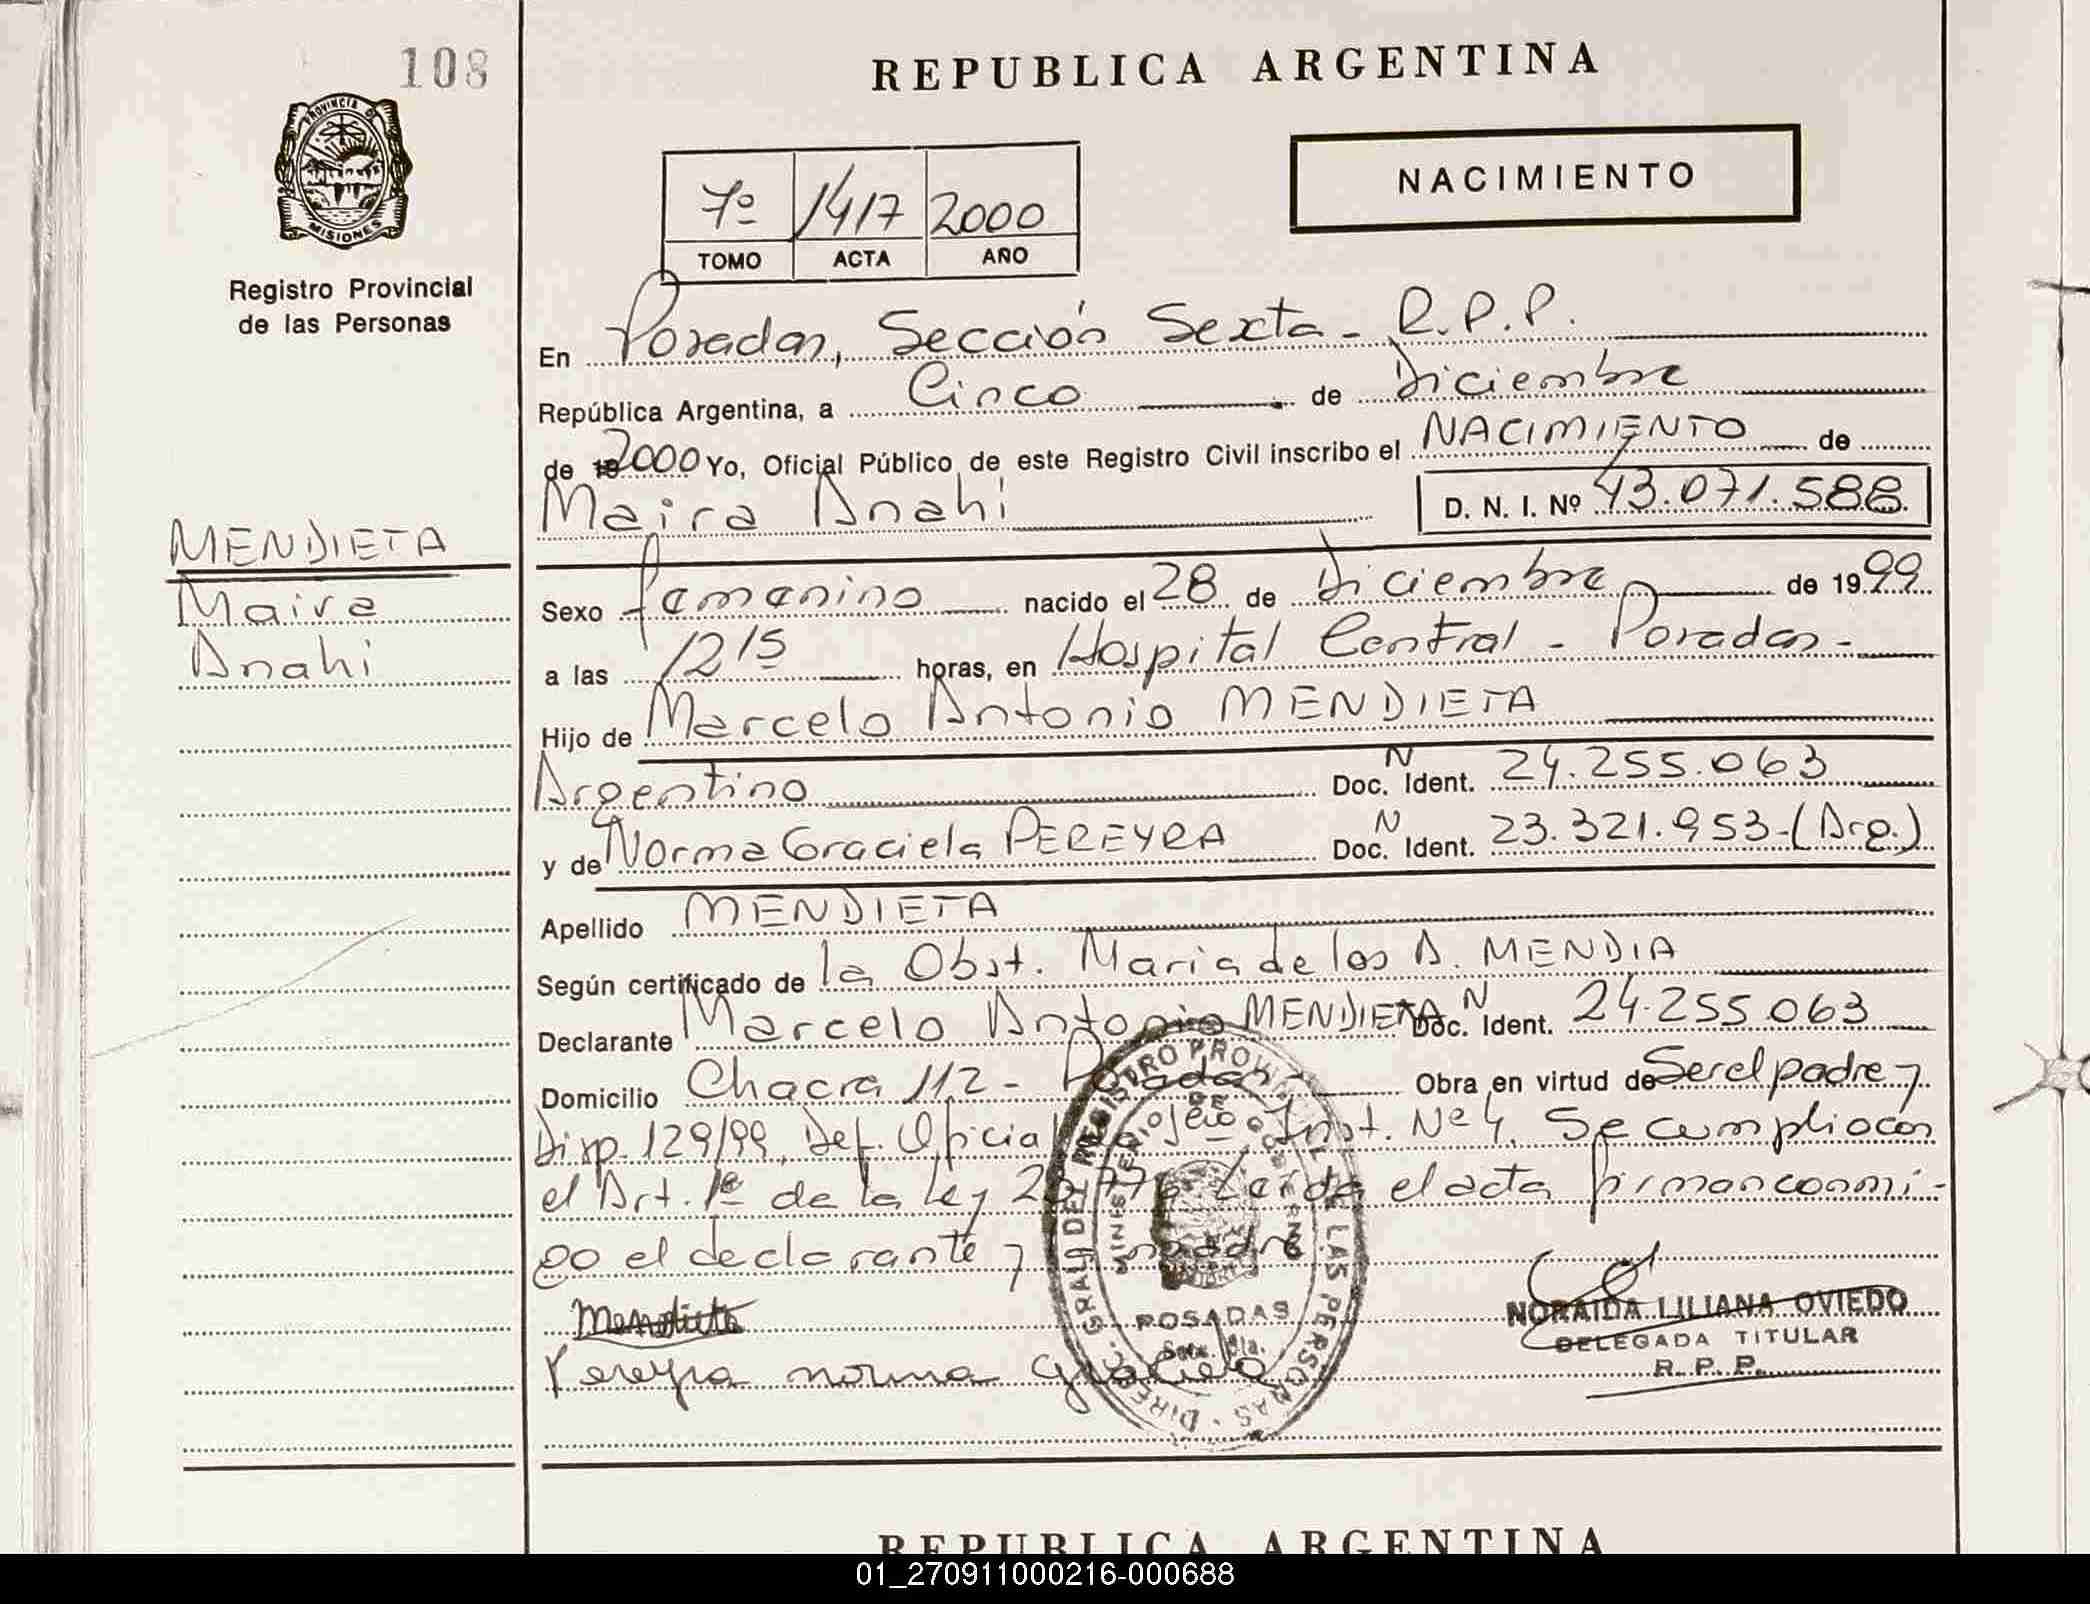 108
REPUBLICA ARGENTINA
PROVINCIA DE
MISIONES
Registro Provincial
de las Personas
NACIMIENTO
7º 1417 2000
TOMO ACTA AÑO
En Posadas, Sección Sexta - R.P.P.
República Argentina, a Cinco de Diciembre
de 2000 Yo, Oficial Público de este Registro Civil inscribo el NACIMIENTO de
Maira Anahi D. N. I. Nº 43.071.588
MENDIETA
Maira
Anahi
Sexo femenino nacido el 28 de Diciembre de 1999
a las 12 15 horas, en Hospital Central - Posadas-
Hijo de Marcelo Antonio MENDIETA
Argentino Doc. N Ident. 24.255.063
y de Norma Graciela PEREYRA Doc. N Ident. 23.321.953-(Arg.)
Apellido MENDIETA
Según certificado de la Obst. Maria de los A. MENDIA
Declarante Marcelo Antonio MENDIETA Doc. N Ident. 24.255.063
Domicilio Chacra 112 - Posadas - Obra en virtud de Ser el padre y
Disp. 129/99, Def. Oficial Inst. Nº 4. Se cumplio con
el Art. 1º de la Ley Leida el acta firman conmi-
go el declarante y madre
Mendieta
Pereyra norma graciela
DIREC. GRAL. DEL REGISTRO PROVINCIAL DE LAS PERSONAS
MINISTERIO DE GOBIERNO
POSADAS
NORAIDA LILIANA OVIEDO
DELEGADA TITULAR
R. P. P.
REPUBLICA ARGENTINA
01_270911000216-000688